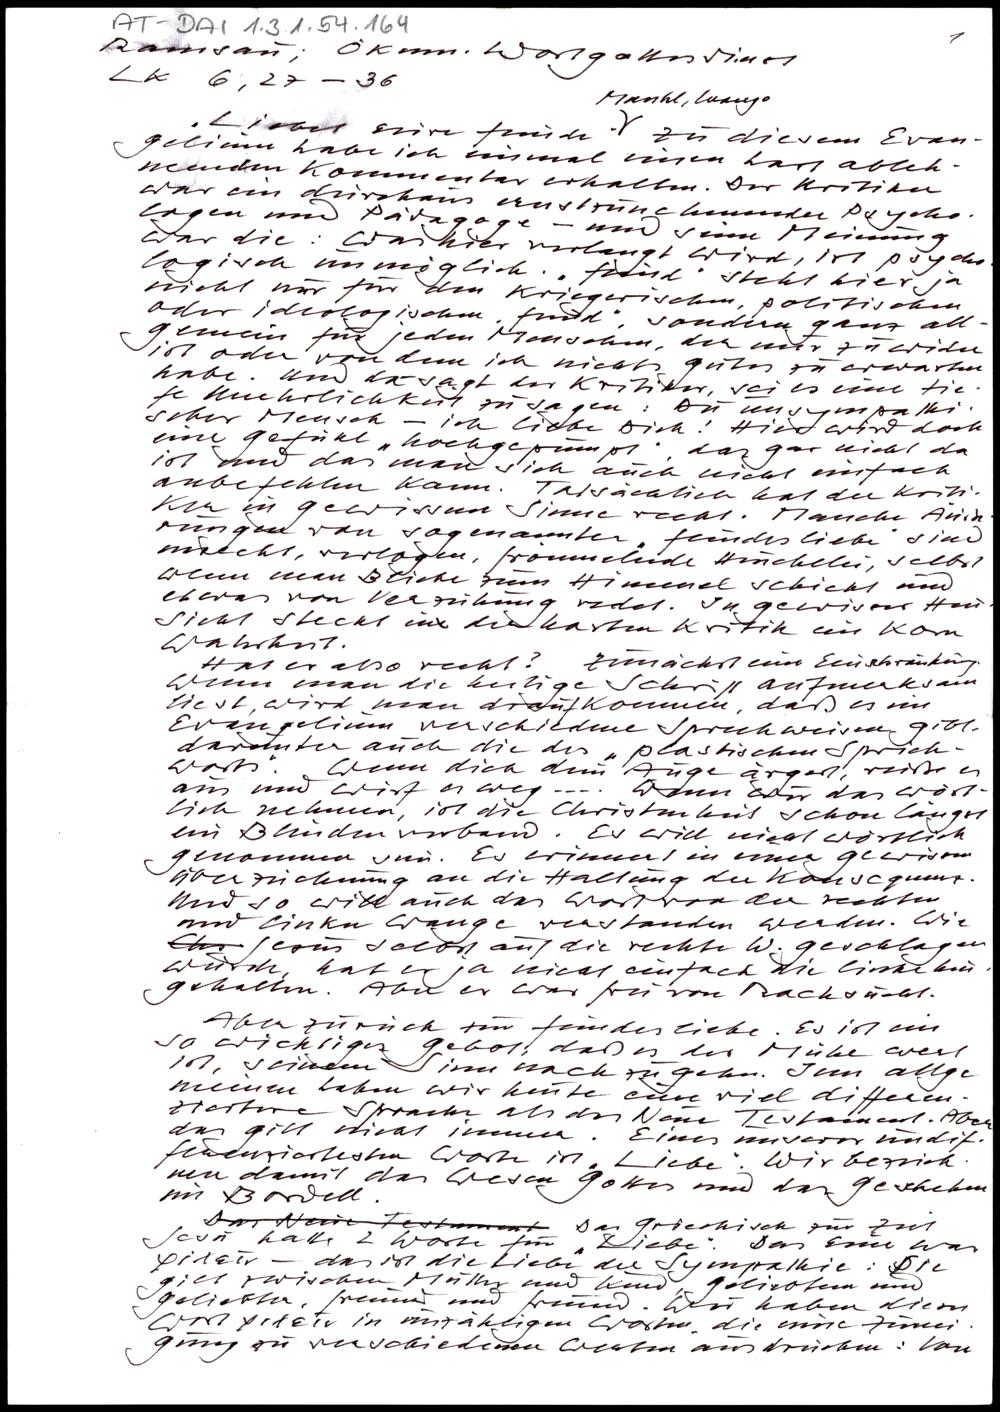 AT-DAI 1.3.1.54.164
1
Ramsau; Ökum. Wortgottesdienst
LK 6,27 - 36
Mantel, Wange
"Liebet eure Feinde" Zu diesem Evan-
gelium habe ich einmal einen hart ableh-
nenden Kommentar erhalten. Der Kritiker
war ein durchaus ernstzunehmender Psycho-
loge und Pädagoge - und seine Meinung
war die: Was hier verlangt wird, ist psycho-
logisch unmöglich. "Feind" steht hier ja
nicht nur für den kriegerischen, politischen
oder ideologischen "Feind", sondern ganz all-
gemein für jeden Menschen, der mir zuwider
ist oder von dem ich nichts gutes zu erwarten
habe. Und da sagt der Kritiker, sei es eine tie-
fe Unehrlichkeit zu sagen: Du unsympathi-
scher Mensch - ich liebe Dich! Hier wird doch
ein Gefühl "hochgepumpt", das gar nicht da
ist und das man sich auch nicht einfach
anbefehlen kann. Tatsächlich hat der Kriti-
ker in gewissem Sinne recht. Manche
von sogenannter "Feindesliebe" sind
unecht, verlogen, frömmelnde Heuchelei, selbst
wenn man Blicke zum Himmel schickt und
etwas von Verzeihung redet. In gewisser Hin-
sicht steckt in der harten Kritik ein Korn
Wahrheit.
Hat er also recht? Zunächst eine Einschränkung.
Wenn man die heilige Schrift aufmerksam
liest, wird man draufkommen, daß es im
Evangelium verschiedene Sprechweisen gibt.
darunter auch die des "plastischen Sprich-
worts". Wenn dich dein Auge ärgert, reiße es
aus und wirf es weg .... Wenn wir das wört-
lich nehmen, ist die Christenheit schon längst
ein Blindenverband. Es will nicht wörtlich
genommen sein. Es erinnert in einer gewissen
Überzeichnung an die Haltung der Konsequenz.
Und so will auch das Wort von der rechten
und linken Wange verstanden werden. Wie
Chr Jesus selbst auf die rechte W. geschlagen
wurde, hat er ja nicht einfach die linke hin-
gehalten. Aber er war frei von Rachsucht.
Aber zurück zur Feindesliebe. Es ist ein
so wichtiges Gebot, daß es der Mühe wert
ist, seinem Sinn nachzugehn. Im allge
meinen haben wir heute eine viel differen-
ziertere Sprache als das Neue Testament. Aber
das gilt nicht immer. Eines unserer undif-
ferenziertesten Worte ist "Liebe". Wir bezeich-
nen damit das Wesen Gottes und das Geschehen
im Bordell.
Das Neue Testament Das Griechisch zur Zeit
Jesu hatte 2 Worte für "Liebe". Das Eine war
φιλεῖν - das ist die Liebe der Sympathie: Sie
gilt zwischen Mutter und Kind, Geliebtem und
Geliebter, Freund und Freund. Wir haben dieses
Wort φιλεῖν in unzähligen Worten, die eine Zunei-
gung zu verschiedenen Werten ausdrücken: Von